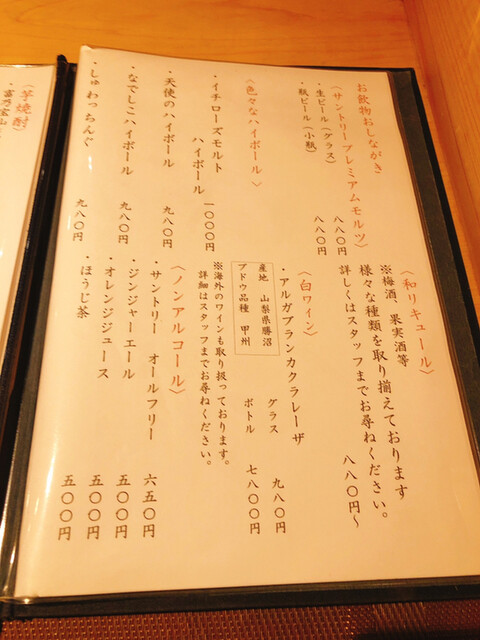 お飲物おしながき
〈サントリープレミアムモルツ〉
・生ビール（グラス） 八八〇円
・瓶ビール（小瓶） 八八〇円
〈色々なハイボール〉
・イチローズモルト
ハイボール 一〇〇〇円
・天使のハイボール 九八〇円
・なでしこハイボール 九八〇円
・しゅわっちんぐ 九八〇円
〈和リキュール〉
※梅酒、果実酒等
様々な種類を取り揃えております
詳しくはスタッフまでお尋ねください。
八八〇円～
〈白ワイン〉
・アルガブランカクラレーザ
グラス 九八〇円
ボトル 七八〇〇円
産地 山梨県勝沼
ブドウ品種 甲州
※海外のワインも取り扱っております。
詳細はスタッフまでお尋ねください。
〈ノンアルコール〉
・サントリー オールフリー 六五〇円
・ジンジャーエール 五〇〇円
・オレンジジュース 五〇〇円
・ほうじ茶 五〇〇円
〈芋焼酎〉
・富乃宝山